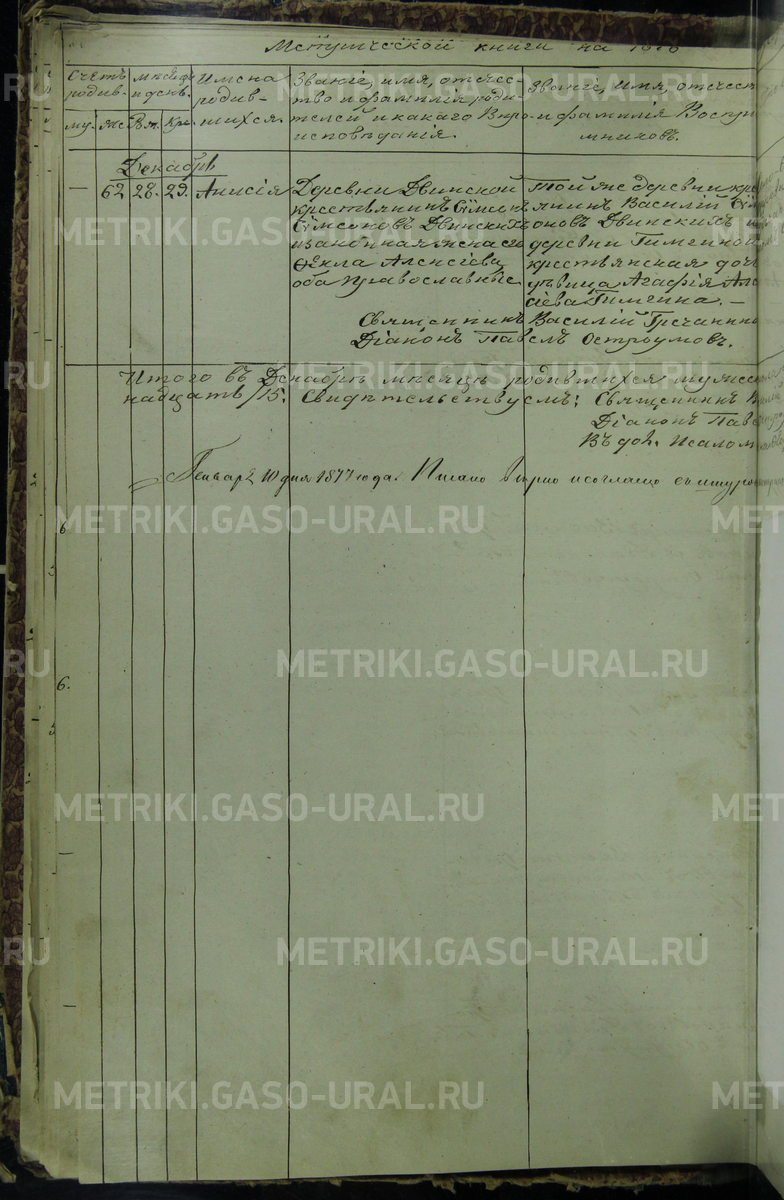 Метрической книги на 1876
Счетъ родив.
мѣсяцъ и день.
Имена родив-
шихся.
Званіе, имя, отечес-
тво и фамилія роди-
телей и какаго Вѣро-
исповѣданія.
Званіе, имя, отечест
и фамилія Воспрі
мниковъ.
му. же. Рж. Кр.
Декабрь
— 62 28. 29. Анисія
Деревни Двинской
крестьянинъ Сѵмеонъ
Сѵмеоновъ Двинскихъ
и законная жена его
Ѳекла Алексіева,
оба православные.
Той же деревни кре
янинъ Василій Сѵм
оновъ Двинскихъ и
деревни Тимгиной
крестьянская доч
дѣвица Агафія Але
сіева Тимгина. —
Священникъ Василій Гречанино
Діаконъ Павелъ Остроумовъ.
Итого въ Декабрѣ мѣсяцѣ родившихся мужеск
надцать /15. Свидѣтельствуемъ: Священникъ В
Діаконъ Паве
Въ дол. Псалом
Генвар 10 дня 1877 года. Писано вѣрно и согласно съ
METRIKI.GASO-URAL.RU